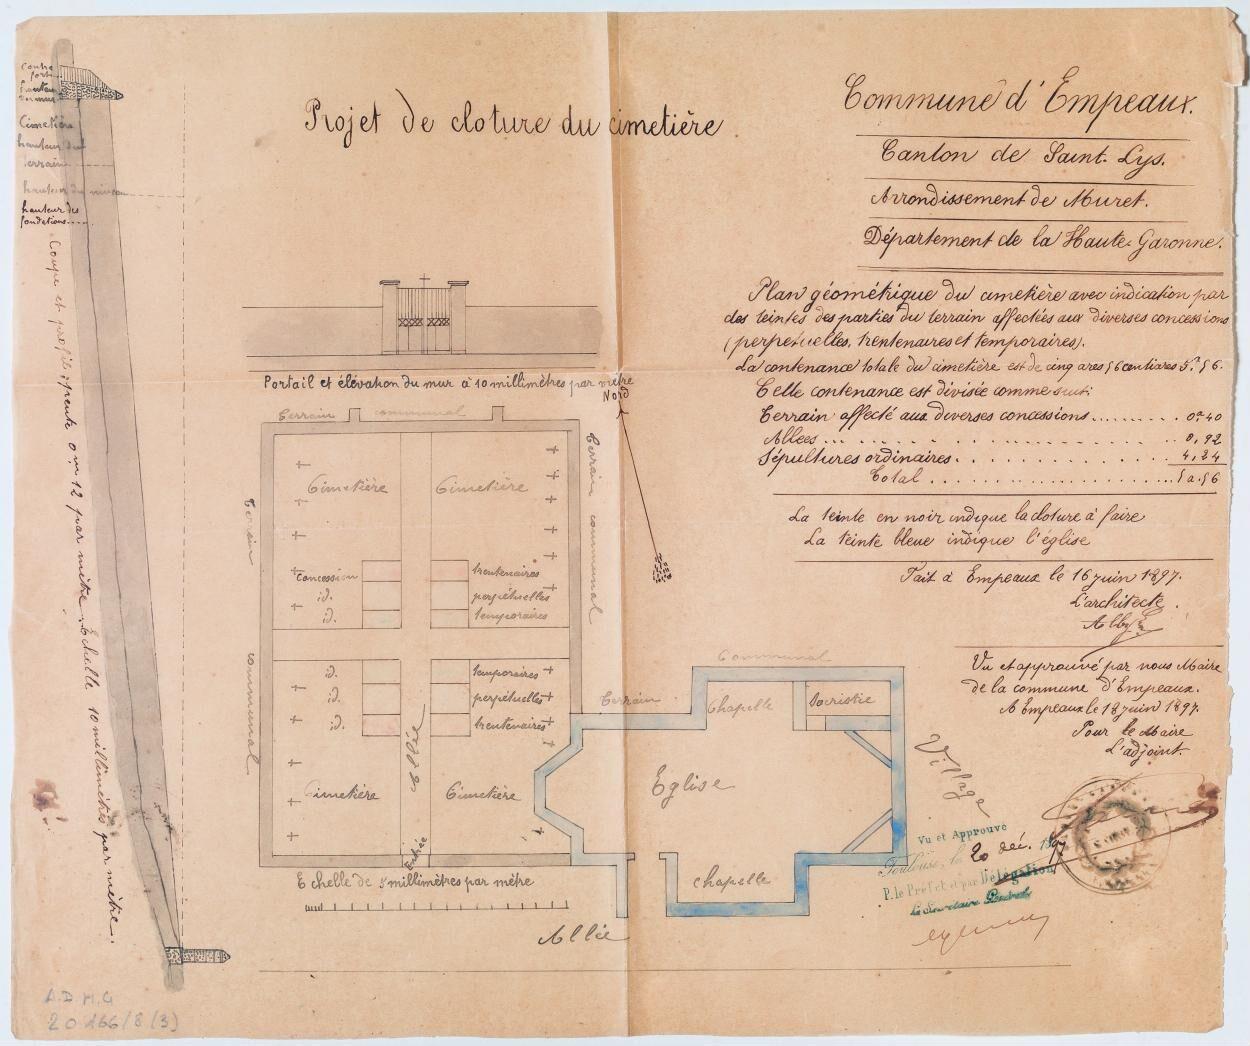 Projet de cloture du cimetière
Commune d'Empeaux.
Canton de Saint-Lys.
Arrondissement de Muret.
Département de la Haute-Garonne.
Plan géométrique du cimetière avec indication par
des teintes des parties du terrain affectées aux diverses concessions
(perpetuelles, trentenaires et temporaires).
La contenance totale du cimetière est de cinq ares 56 centiares 5.a56.
Celle contenance est divisée comme suit:
Terrain affecté aux diverses concessions......... 0.a40
Allées... 0,92
Sépultures ordinaires. 4,24
Total 5a.56
La teinte en noir indique la cloture à faire
La teinte bleue indique l'église
Fait à Empeaux le 16 juin 1897.
L'architecte.
Vu et approuvé par nous Maire
de la commune d'Empeaux.
A Empeaux le 18 juin 1897.
Pour le Maire
L'adjoint.
Vu et Approuvé
Toulouse, le 20 déc. 1897
P. le Préfet et par Délégation
Le Secrétaire Général
contre
fort
hauteur
du mur
Cimetière
hauteur du
terrain
hauteur du niveau
hauteur des
fondations.....
Coupe et profils; pente 0m,12 par mètre. Echelle 10 millimètres par mètre.
Portail et élévation du mur à 10 millimètres par mètre
Nord
Terrain communal
Terrain communal
Terrain communal
Cimetière Cimetière
concession trentenaires
id. perpétuelles
id. temporaires
id. temporaires
id. perpétuelles
id. trentenaires
Allée
Cimetière Cimetière
Entrée
Terrain Communal
Chapelle Sacristie
Eglise
Village
chapelle
Echelle de 5 millimètres par mètre
Allée
A.D H.G
2 O 166/8 (3)